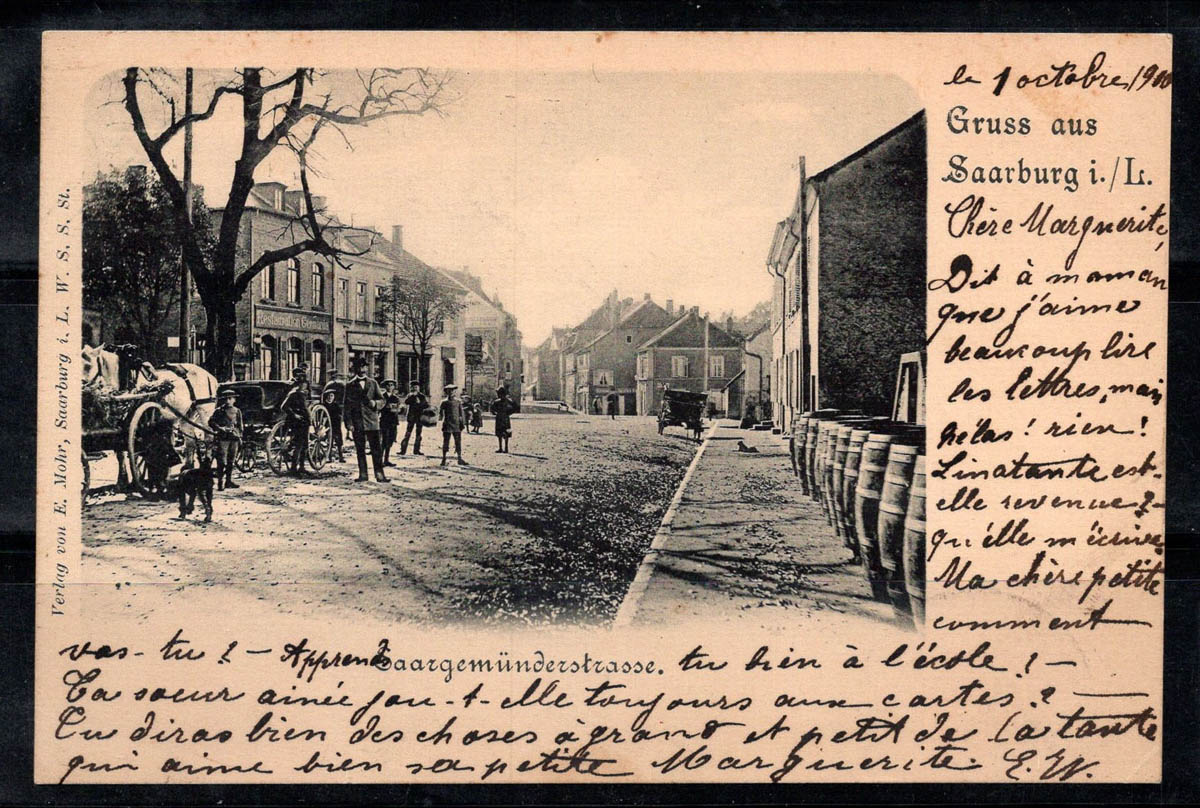 le 1 octobre 1900
Gruss aus
Saarburg i./L.
Chère Marguerite,
Dit à maman
que j'aime
beaucoup lire
les lettres, mais
hélas! rien!
L'inatante est-
elle revenue?-
qu'elle m'écrive.
Ma chère petite
comment
vas-tu? - Apprend
Saargemünderstrasse.
tu bien à l'école! -
Ta soeur ainée jou-t-elle toujours aux cartes? -
Tu diras bien des choses à grand et petit de la tante
qui aime bien sa petite Marguerite. E. W.
Verlag von E. Mohr, Saarburg i. L. W. S. S. St.
Restauration Germania